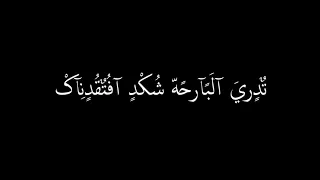 تٌدٍريَ آلَبًآرحًهّ شُكْدٍ آفُتٌقُدٍنِآكْ